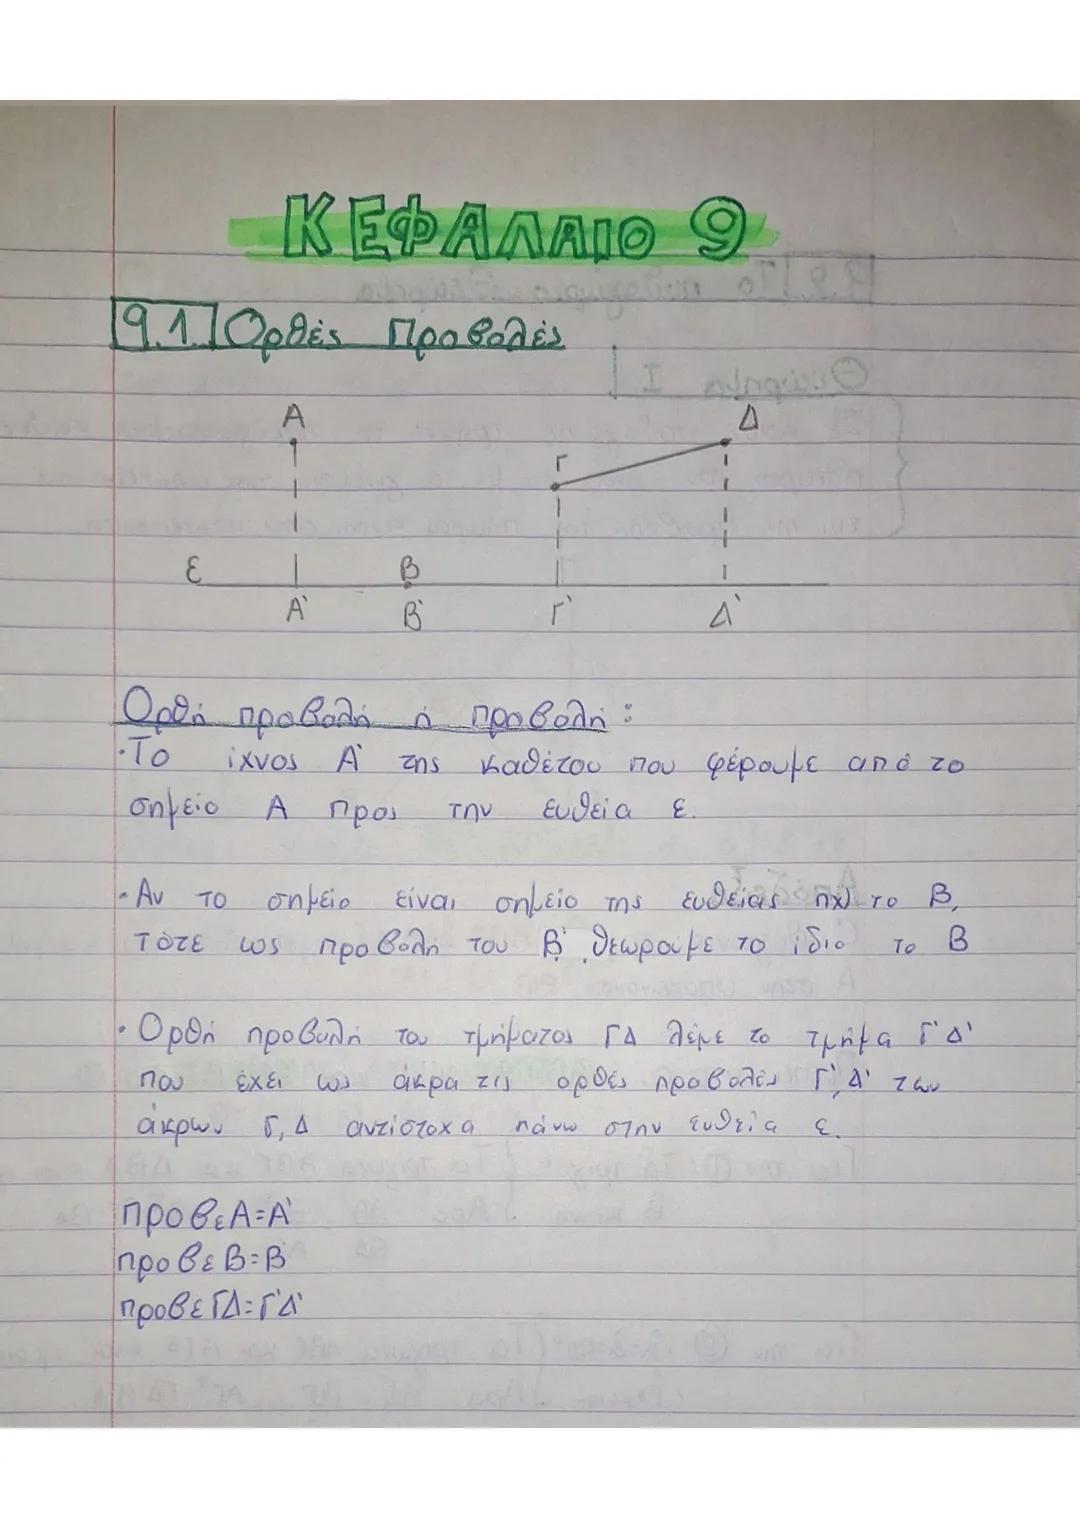 ΚΕΦΑΛΑΙΟ 9
9.1. Ορθές Προβολές
Α Δ
Γ
ε Β
Α' Β' Γ' Δ'
Ορθή προβολή ή προβολή:
·Το ίχνος Α' της καθέτου που φέρουμε από το
σημείο Α προς την ευθεία ε.
·Αν το σημείο είναι σημείο της ευθείας πχ) το Β,
τότε ως προβολή του Β' θεωρούμε το ίδιο το Β
·Ορθή προβολή του τμήματος ΓΔ λέμε το τμήμα Γ'Δ'
που έχει ως άκρα τις ορθές προβολές Γ', Δ' των
άκρων Γ, Δ αντίστοχα πάνω στην ευθεία ε.
προβεΑ=Α'
προβεΒ=Β'
προβεΓΔ=Γ'Δ'